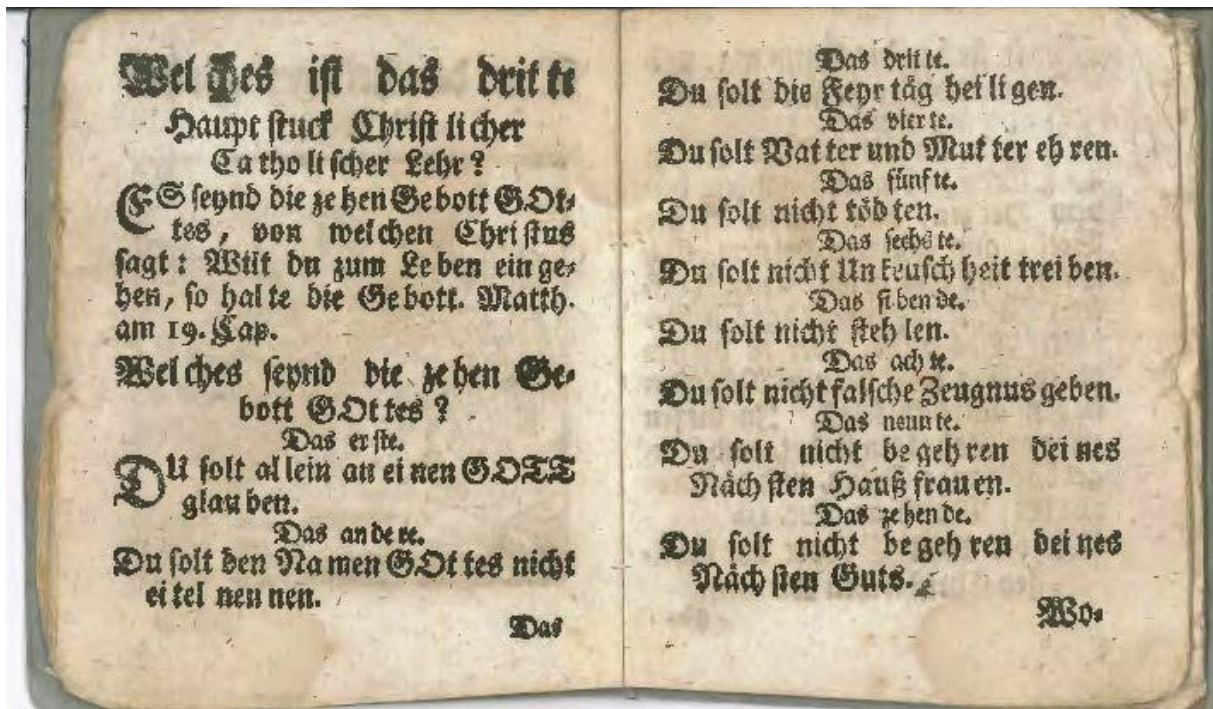 Wel ches ist das drit te
Haupt stuck Christ li cher
Ca tho li scher Lehr?
ES seynd die ze hen Gebott GOt-
tes, von wel chen Chri stus
sagt: Wilt du zum Le ben ein ge-
hen, so hal te die Ge bott. Matth.
am 19. Cap.
Wel ches seynd die ze hen Ge-
bott GOt tes?
Das er ste.
DU solt al lein an ei nen GOTT
glau ben.
Das an de re.
Du solt den Na men GOt tes nicht
ei tel nen nen.
Das
Das drit te.
Du solt die Feyr täg hei li gen.
Das vier te.
Du solt Vat ter und Mut ter eh ren.
Das fünf te.
Du solt nicht töd ten.
Das sechs te.
Du solt nicht Un keusch heit trei ben.
Das si ben de.
Du solt nicht steh len.
Das ach te.
Du solt nicht falsche Zeugnus geben.
Das neun te.
Du solt nicht be geh ren dei nes
Näch sten Hauß frau en.
Das ze hen de.
Du solt nicht be geh ren dei nes
Näch sten Guts.
Wo-